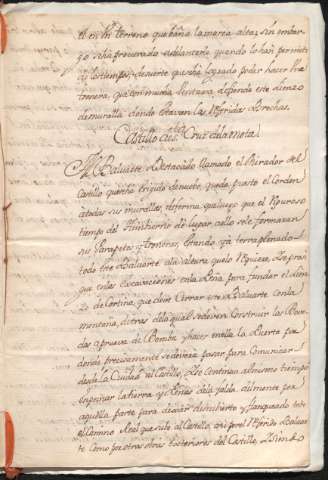 en un terreno que baña la marea alta; sin embar
go se ha procurado adelantarle quando lo han permitido
los tiempos, de suerte que se ha logrado poder hacer una
que con mucha ventaja defienda este lienzo
de muralla donde estavan las referidas Brechas.
Castillo de Sta Cruz de la mota
El Baluarte Destacado llamado el Mirador del
Castillo queda erigido de suerte, que da puesto el Cordon
a todas sus murallas, de forma, que luego que el riguroso
tiempo del Hinbierno dé lugar, solo se formaran
sus Parapetos y troneras, estando ya terraplenado
todo este Baluarte a la altura que lo requiere. Se prosi
gue en las excavaciones en la Peña para fundar el lienzo
de Cortina, que debe cerrar este Baluarte con la
montaña, detras de la qual se deven construir las Bove
das a prueva de Bomba, y hacer en ella la Puerta por
donde precisamente se deverá pasar para Comunicar
desde la Ciudad al Castillo. Se continua al mismo tiempo
en quitar la tierra y Peñas de la falda del monte por
aquella parte para dexar descubierto y flanqueado todo
el Camino Real que sube al Castillo, asi por el referido Baluar
te como por otras obras Posteriores del Castillo. Siendo